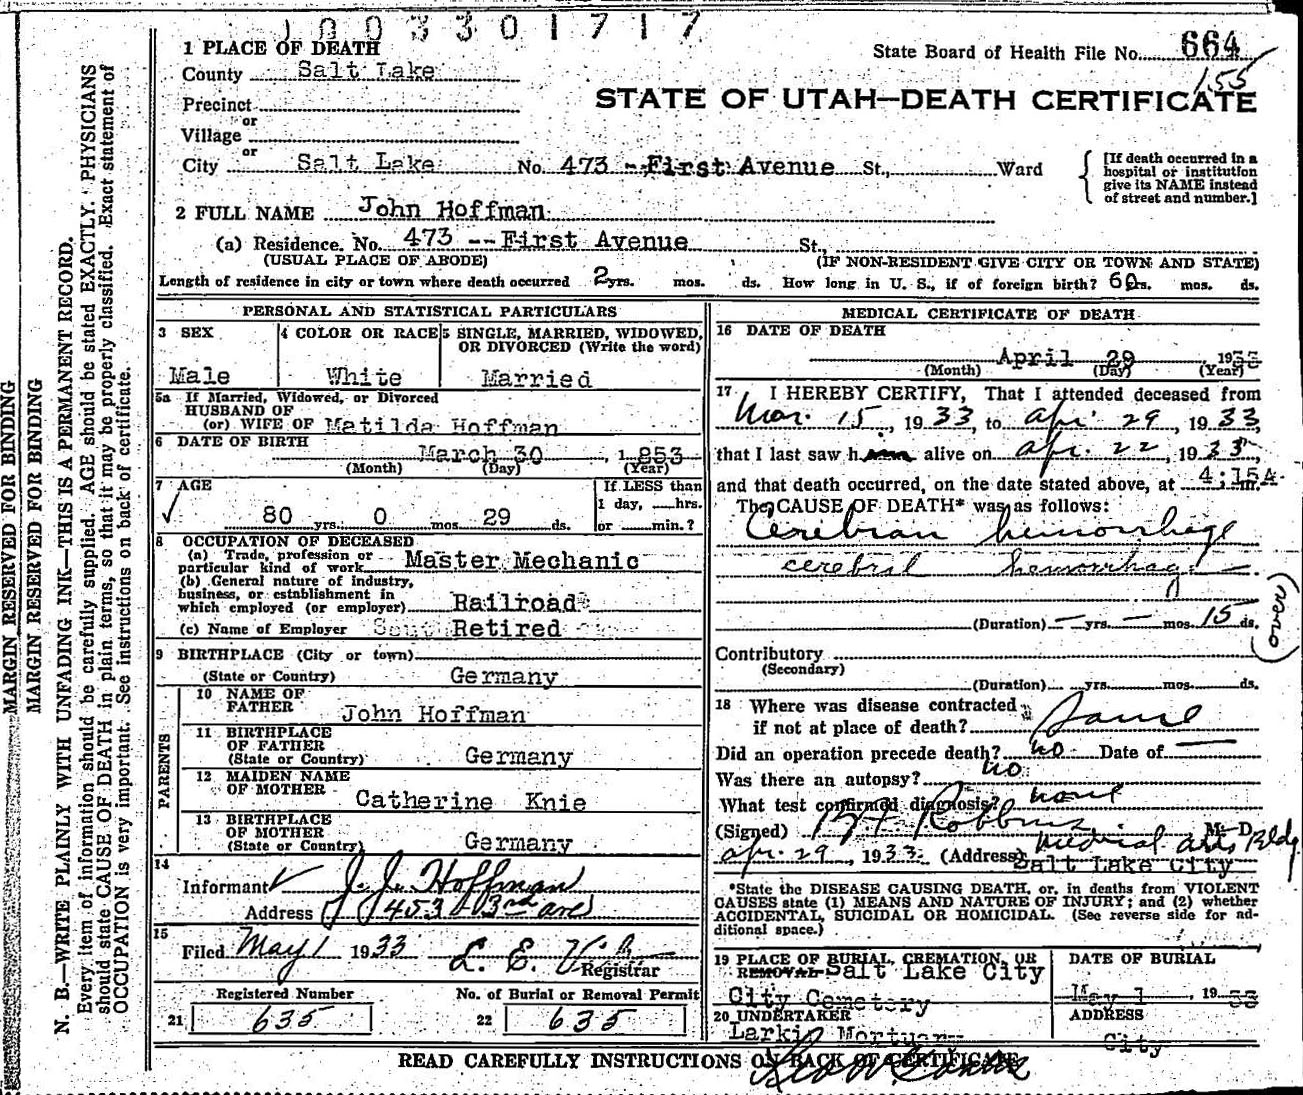 1003301717
State Board of Health File No. 664
155
STATE OF UTAH—DEATH CERTIFICATE
1 PLACE OF DEATH
County Salt Lake
Precinct
or
Village
or
City Salt Lake No. 473 --First Avenue St., Ward
[If death occurred in a
hospital or institution
give its NAME instead
of street and number.]
2 FULL NAME John Hoffman
(a) Residence. No. 473 --First Avenue St.,
(USUAL PLACE OF ABODE) (IF NON-RESIDENT GIVE CITY OR TOWN AND STATE)
Length of residence in city or town where death occurred 2 yrs. mos. ds. How long in U. S., if of foreign birth? 60 yrs. mos. ds.
PERSONAL AND STATISTICAL PARTICULARS
3 SEX
Male
4 COLOR OR RACE
White
5 SINGLE, MARRIED, WIDOWED,
OR DIVORCED (Write the word)
Married
5a If Married, Widowed, or Divorced
HUSBAND OF
(or) WIFE OF Matilda Hoffman
6 DATE OF BIRTH
March 30, 1853
(Month) (Day) (Year)
7 AGE
80 yrs. 0 mos. 29 ds.
If LESS than
1 day, hrs.
or min.?
8 OCCUPATION OF DECEASED
(a) Trade, profession or
particular kind of work Master Mechanic
(b) General nature of industry,
business, or establishment in
which employed (or employer) Railroad
(c) Name of Employer Retired
9 BIRTHPLACE (City or town)
(State or Country) Germany
PARENTS
10 NAME OF
FATHER
John Hoffman
11 BIRTHPLACE
OF FATHER
(State or Country) Germany
12 MAIDEN NAME
OF MOTHER
Catherine Knie
13 BIRTHPLACE
OF MOTHER
(State or Country) Germany
14
Informant J. J. Hoffman
Address 453 - 3rd ave
15
Filed May 1 1933 L. E. Registrar
Registered Number
21 635
No. of Burial or Removal Permit
22 635
MEDICAL CERTIFICATE OF DEATH
16 DATE OF DEATH
April 29 1933
(Month) (Day) (Year)
17 I HEREBY CERTIFY, That I attended deceased from
Mar. 15, 1933, to apr. 29, 1933,
that I last saw him alive on apr. 22, 1933,
and that death occurred, on the date stated above, at 4:15A m.
The CAUSE OF DEATH* was as follows:
Cerebran hemorrhage
cerebril hemorrhage
(Duration) — yrs. — mos. 15 ds.
(over)
Contributory
(Secondary)
(Duration) yrs. mos. ds.
18 Where was disease contracted
if not at place of death? Same
Did an operation precede death? no Date of —
Was there an autopsy? no
What test confirmed diagnosis? none
(Signed) Robbins M. D.
apr. 29, 1933. (Address) Medical arts Bldg
Salt Lake City
*State the DISEASE CAUSING DEATH, or, in deaths from VIOLENT
CAUSES state (1) MEANS AND NATURE OF INJURY; and (2) whether
ACCIDENTAL, SUICIDAL OR HOMICIDAL. (See reverse side for ad-
ditional space.)
19 PLACE OF BURIAL, CREMATION, OR
REMOVAL Salt Lake City
City Cemetery
DATE OF BURIAL
May 1, 1933
20 UNDERTAKER
Larkin Mortuary
ADDRESS
City
READ CAREFULLY INSTRUCTIONS ON BACK OF CERTIFICATE
MARGIN RESERVED FOR BINDING
MARGIN RESERVED FOR BINDING
N. B.—WRITE PLAINLY WITH UNFADING INK—THIS IS A PERMANENT RECORD.
Every item of information should be carefully supplied. AGE should be stated EXACTLY. PHYSICIANS
should state CAUSE OF DEATH in plain terms, so that it may be properly classified. Exact statement of
OCCUPATION is very important. See instructions on back of certificate.